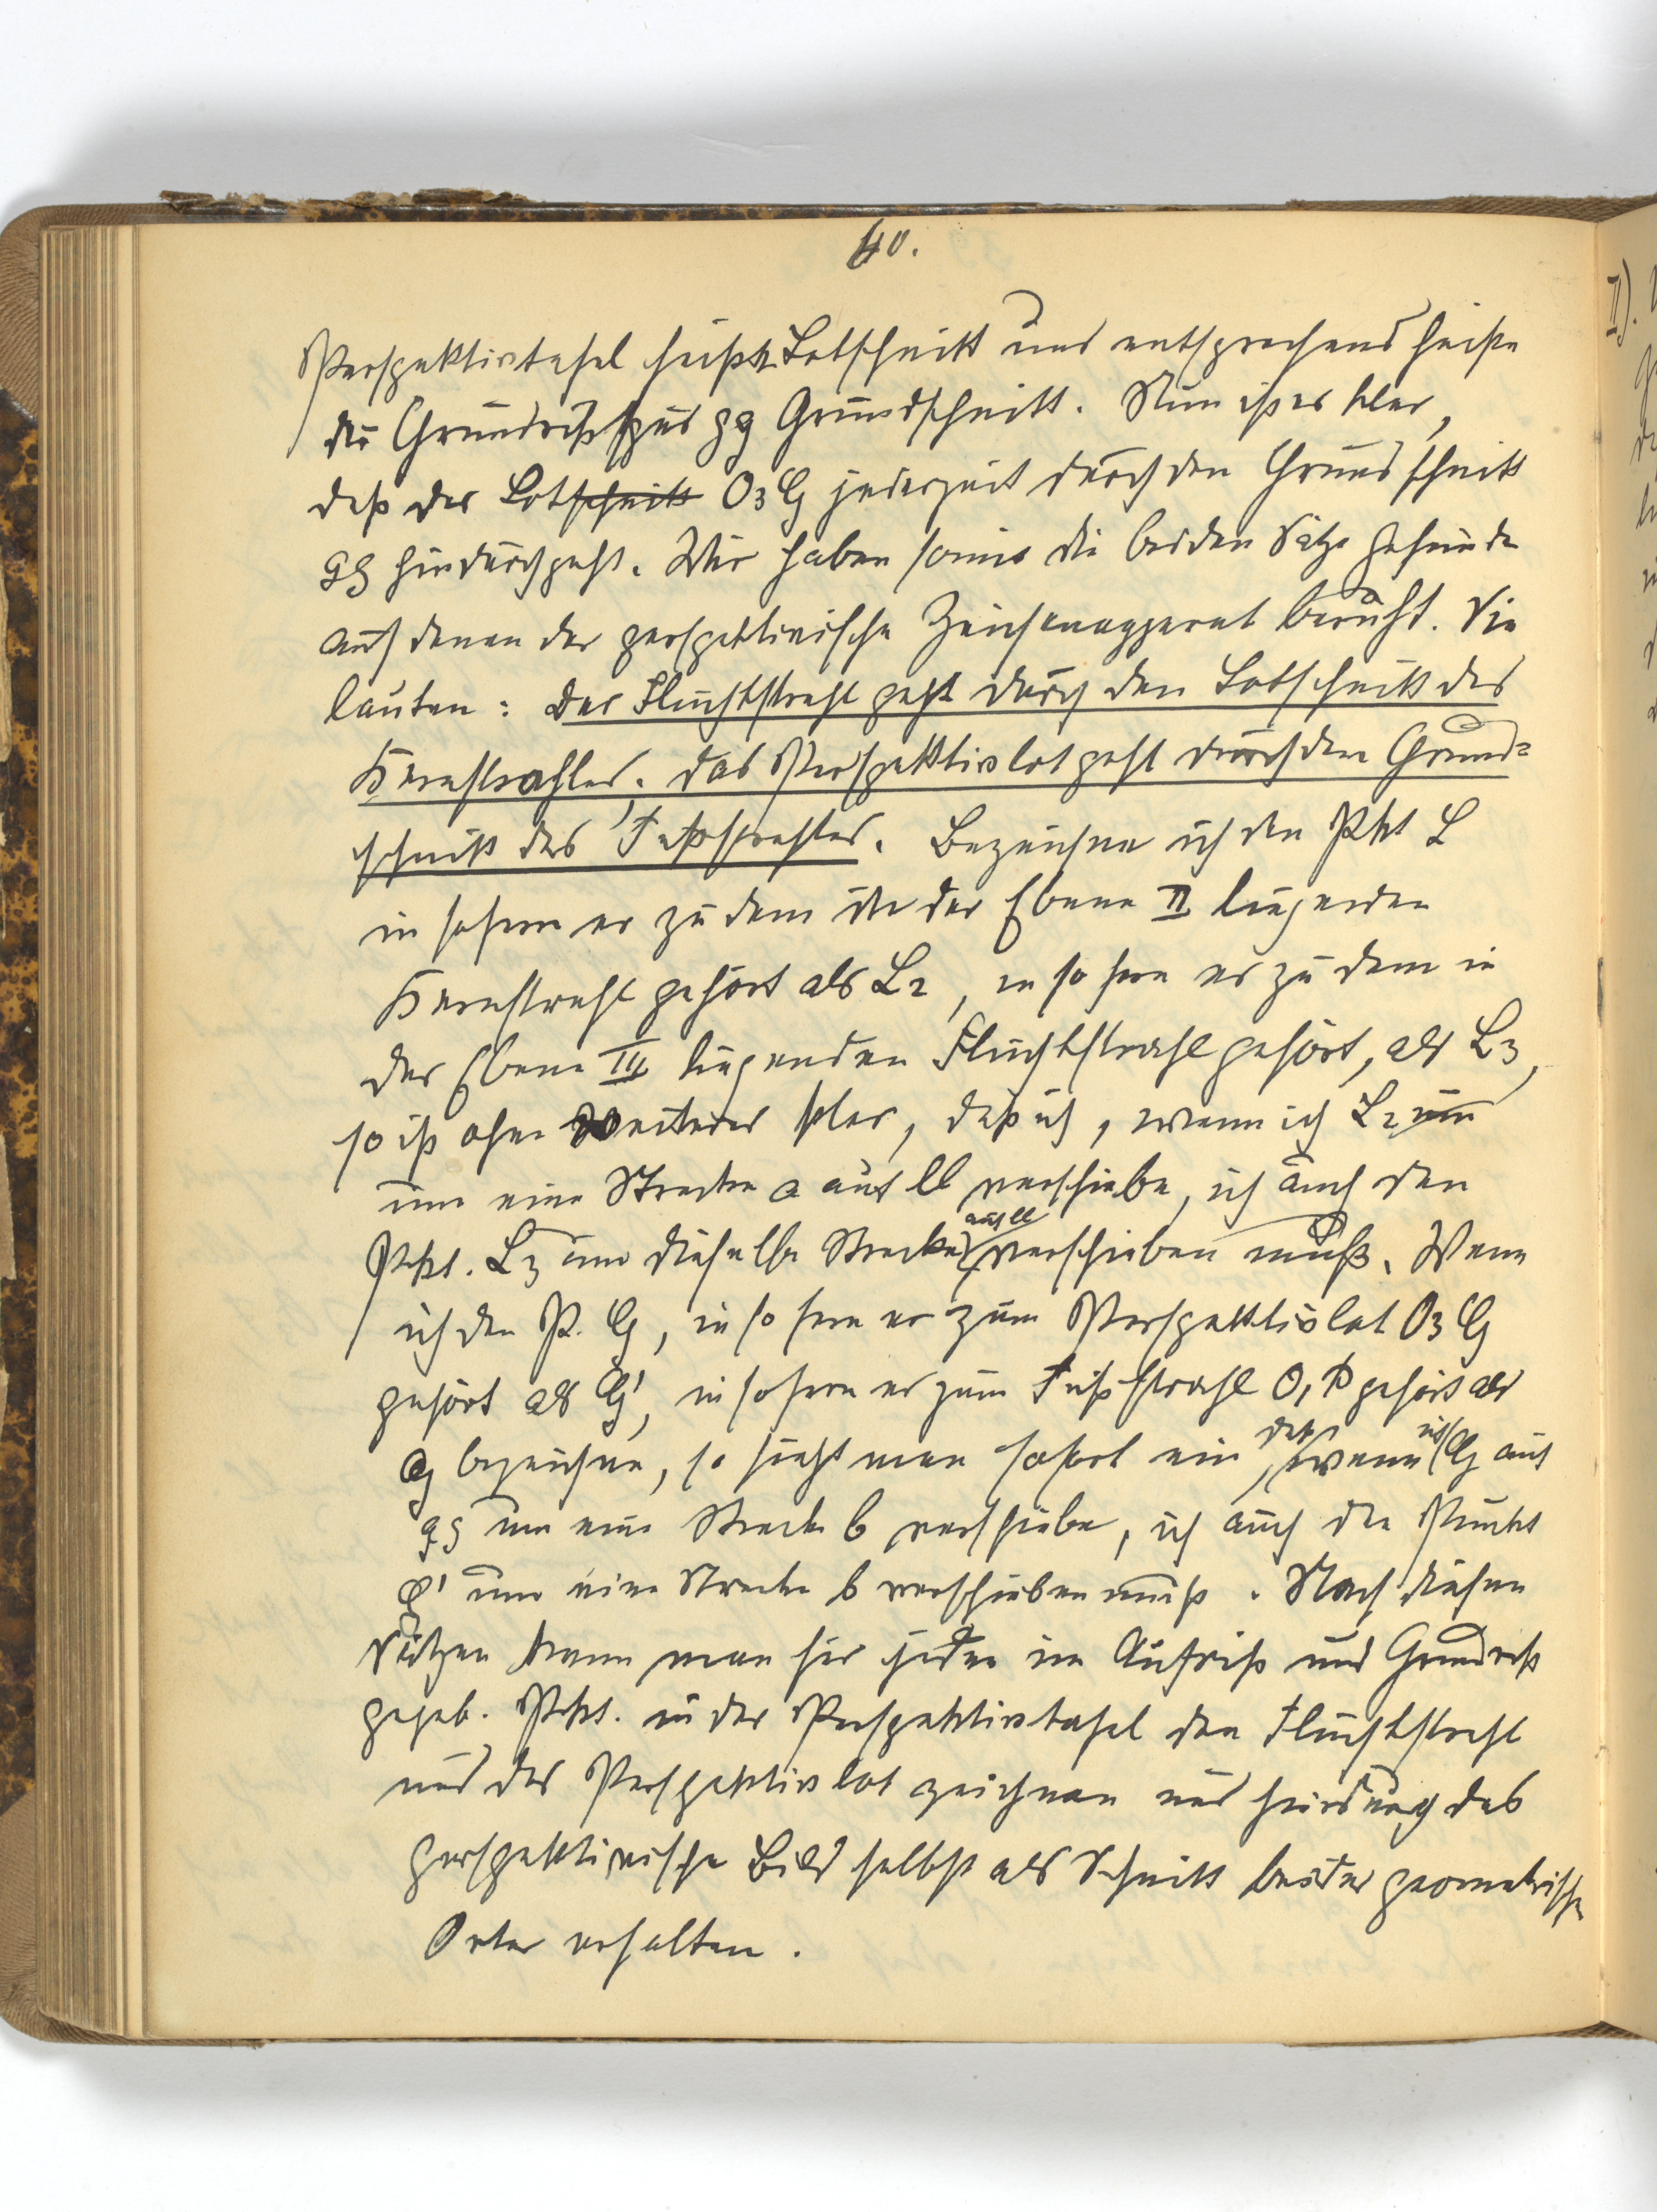 40.
Perspektivtafel heißt Lotschnitt und entsprechend heiße
die Grundrißspur gg Grundschnitt. Nun ist es klar,
daß das Lotschnitt O3 G jederzeit durch den Grundschnitt
gg hindurchgeht. Wir haben somit die beiden Sätze gefunden
auf denen der perspektivische Zeichenapparat beruht. Sie
lauten: Der Fluchtstrahl geht durch den Lotschnitt des
Kernstrahles. Das Perspektivlot geht durch den Grund=
schnitt des Fußstrahles. Bezeichne ich den Pkt L
in sofern er zu dem in der Ebene II liegenden
Kernstrahl gehört als L2, in so fern er zu dem in
der Ebene III liegenden Fluchtstrahl gehört, als L3,
so ist ohne weiteres klar, daß ich, wenn ich L2 um
um eine Strecke a auf ll verschiebe, ich auch den
Pkt. L3 um dieselbe Strecke auf ll verschieben muß. Wenn
ich den P. G, in so fern er zum Perspektivlot O3 G
gehört als G', in sofern er zum Fußstrahl O1 P gehört als
G bezeichne, so sieht man sofort ein daß, wenn ich G auf
gg um eine Strecke b verschiebe, ich auch den Punkt
G' um eine Strecke b verschieben muß. Nach diesen
Sätzen kann man für jeden im Aufriß und Grundriß
gegeb. Pkt. in der Perspektivtafel den Fluchtstrahl
und das Perspektivlot zeichnen und hierdurch das
perspektivische Bild selbst als Schnitt beider geometrischer
Orter erhalten.